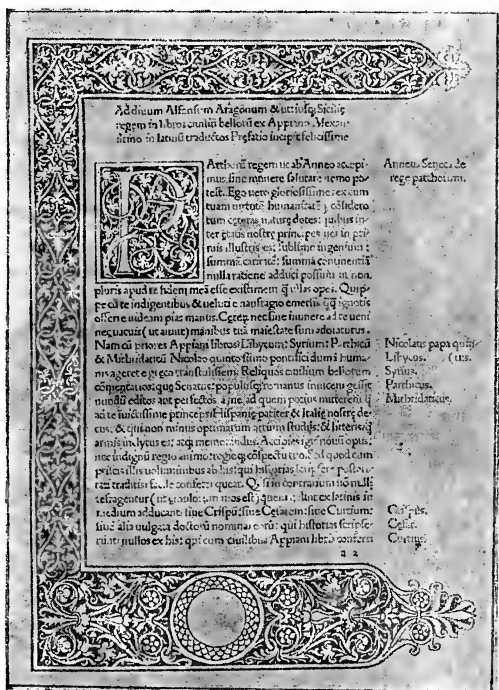 Ad diuum Alfonsum Aragonum & utriusq; Sicilie
regem in libros ciuiliũ bellorũ ex Appiano Alexan
drino in latinũ traductos Prefatio incipit felicissime
PArthorũ regem ut ab Anneo accepi
mus sine munere salutare nemo po
test. Ego uero gloriosissime rex cum
tuam uirtutẽ humanitatẽ q; cõsidero
tum ceteras nature dotes: quibus in
ter etatis nostre principes uel in pri
mis illustris es: sublime ingenium:
summã caritatẽ: summã continentiã
nulla ratione adduci possum ut non
pluris apud te fidem meã esse existimem q̃ ullas opes. Quip
pe cũ te indigentibus & ueluti e naufragio emersis q̃q̃ ignotis
offerre uideam pias manus. Egre nec sine munere ad te ueni
nec uacuis (ut aiunt) manibus tuã maiestatẽ sum adoraturus.
Nam cũ priores Appiani libros: Libycum: Syrium: Parthicũ
& Mithridaticũ Nicolao quinto summo pontifici dum i huma
nis ageret e greco transtulissem: Reliquos ciuilium bellorum
comentarios: que Senatus: populusq; romanus inuicem gessit
nondũ editos aut perfectos a me, ad quem potius mitterem q̃
ad te inuictissime princeps Hispanie pariter & Italie nostre de
cus: & qui non minus optimarum artium studiis: & litteris: q̃
armis inclytus es: atq; memorandus. Accipies igit nouũ opus:
nec indignũ regio animo: regio q; cõspectu
priscis illis uoluminibus ab his: qui historias
rati traditis facile conferri queat. Q si in contrarium nõ nulli
refragentur (ut eorum mos est) ex latinis in
medium adducant: siue Crispũ: siue Cesarem: siue Curtium:
siue alia uulgata doctorũ nomina: eorũ: qui historias scripse
runt: nullos ex his: qui cum ciuilibus Appiani libris conferri
a 2
Anneus Seneca de
rege parthorum.
Nicolaus papa quin
Libycus. (tus.
Syrius.
Parthicus.
Mithridaticus.
Crispus.
Cesar.
Curtius.